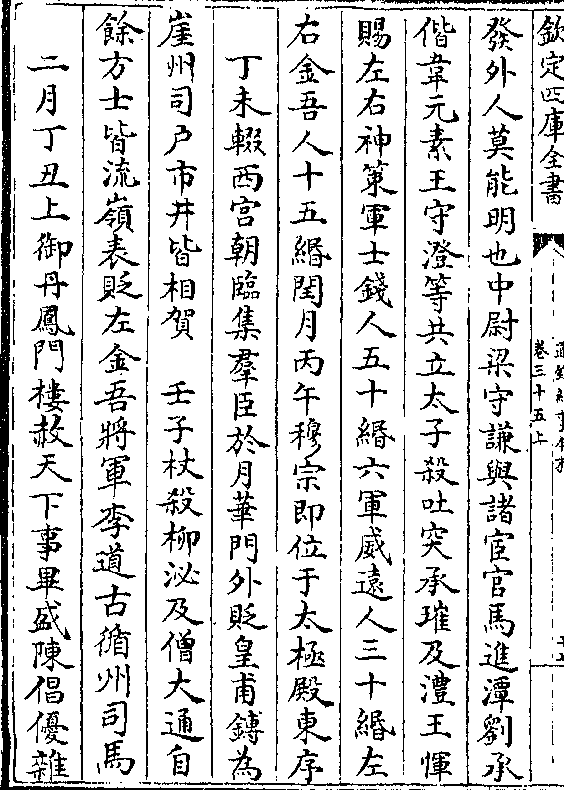 欽定四庫全書
卷三十五上
發外人莫能明也中尉梁守謙與諸宦官馬進潭劉承
偕韋元素王守澄等共立太子殺吐突承璀及澧王惲
賜左右神策軍士錢人五十緡六軍威遠人三十緡左
右金吾人十五緡閏月丙午穆宗即位于太極殿東序
丁未輟西宮朝臨集羣臣於月華門外貶皇甫鎛為
崖州司戶市井皆相賀 壬子杖殺柳泌及僧大通自
餘方士皆流嶺表貶左金吾將軍李道古循州司馬
二月丁丑上御丹鳳門樓赦天下事畢盛陳倡優雜